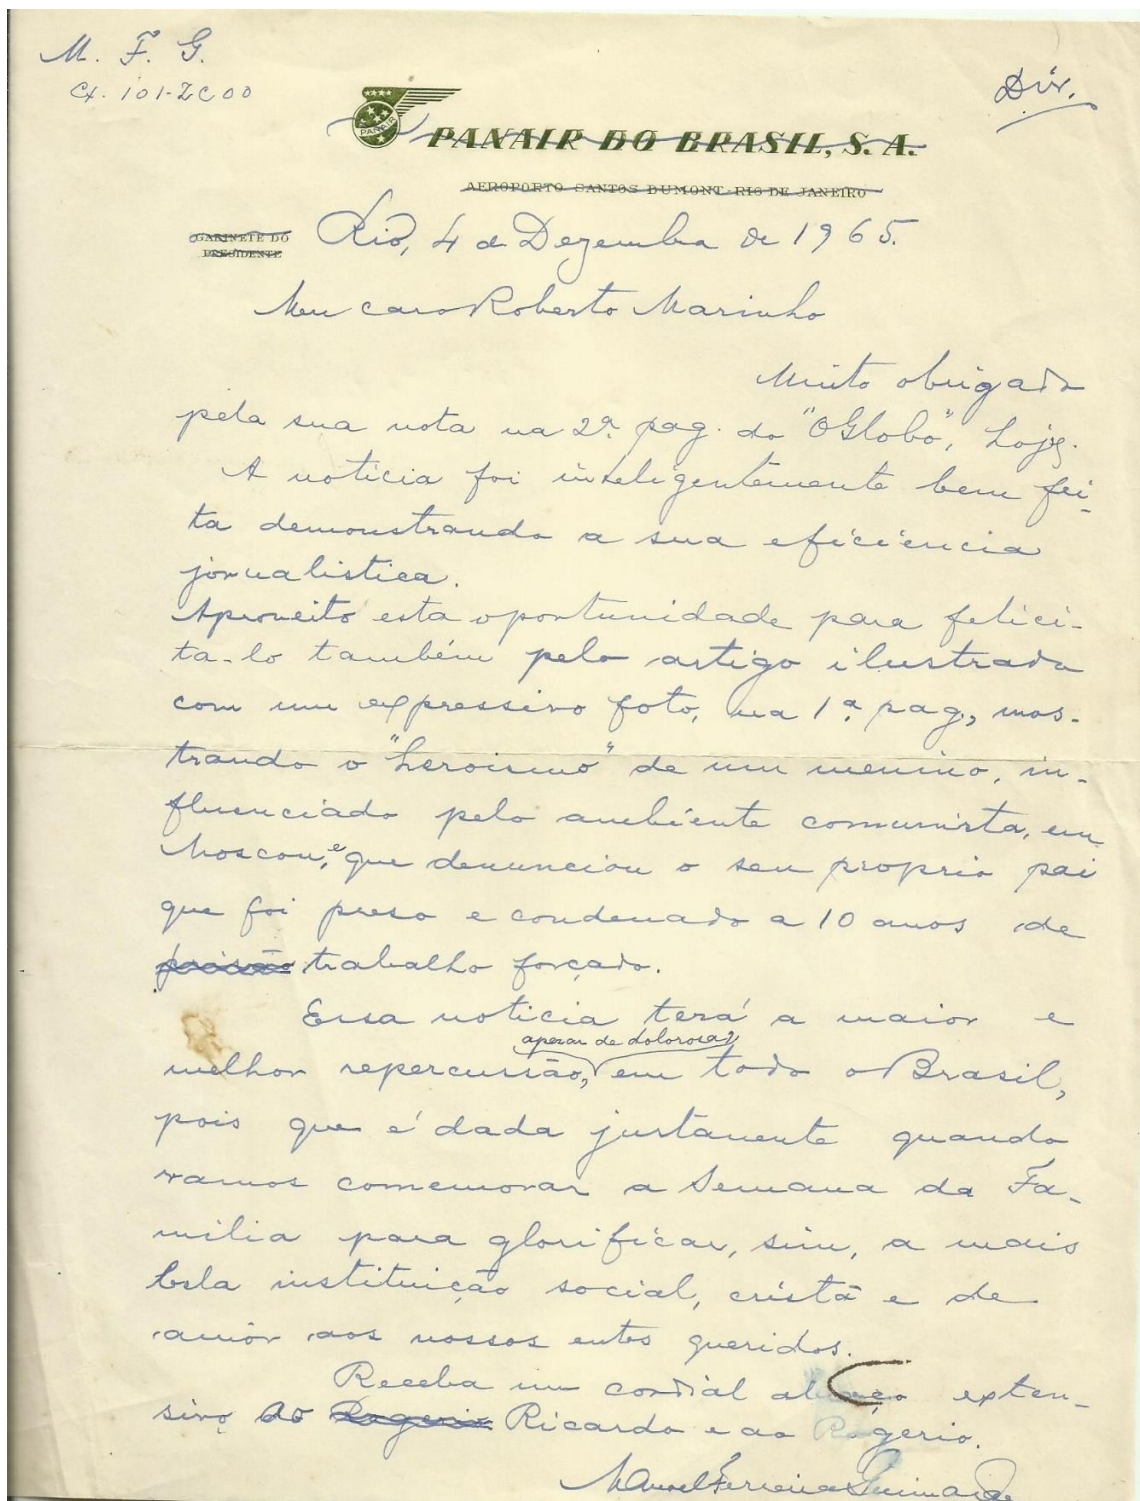 M. F. G.
Cx. 101-ZC 00
Div.
PANAIR
PANAIR DO BRASIL, S. A.
AEROPORTO SANTOS DUMONT - RIO DE JANEIRO
GABINETE DO
PRESIDENTE
Rio, 4 de Dezembro de 1965.
Meu caro Roberto Marinho
Muito obrigado
pela sua nota na 2ª pag. do "O Globo", hoje.
A noticia foi inteligentemente bem fei-
ta demonstrando a sua eficiencia
jornalistica.
Aproveito esta oportunidade para felici-
ta-lo também pelo artigo ilustrado
com um expressivo foto, na 1ª pag., mos-
trando o "heroismo" de um menino, in-
fluenciado pelo ambiente comunista, em
Moscou, e que denunciou o seu proprio pai
que foi preso e condenado a 10 anos de
prisão trabalho forçado.
Essa noticia terá a maior e
apezar de dolorosa,
melhor repercussão, em todo o Brasil,
pois que é dada justamente quando
vamos comemorar a Semana da Fa-
milia para glorificar, sim, a mais
bela instituição social, cristã e de
amôr aos nossos entes queridos.
Receba um cordial abraço exten-
sivo ao Rogerio Ricardo e ao Rogerio.
Manoel Ferreira Guimarães